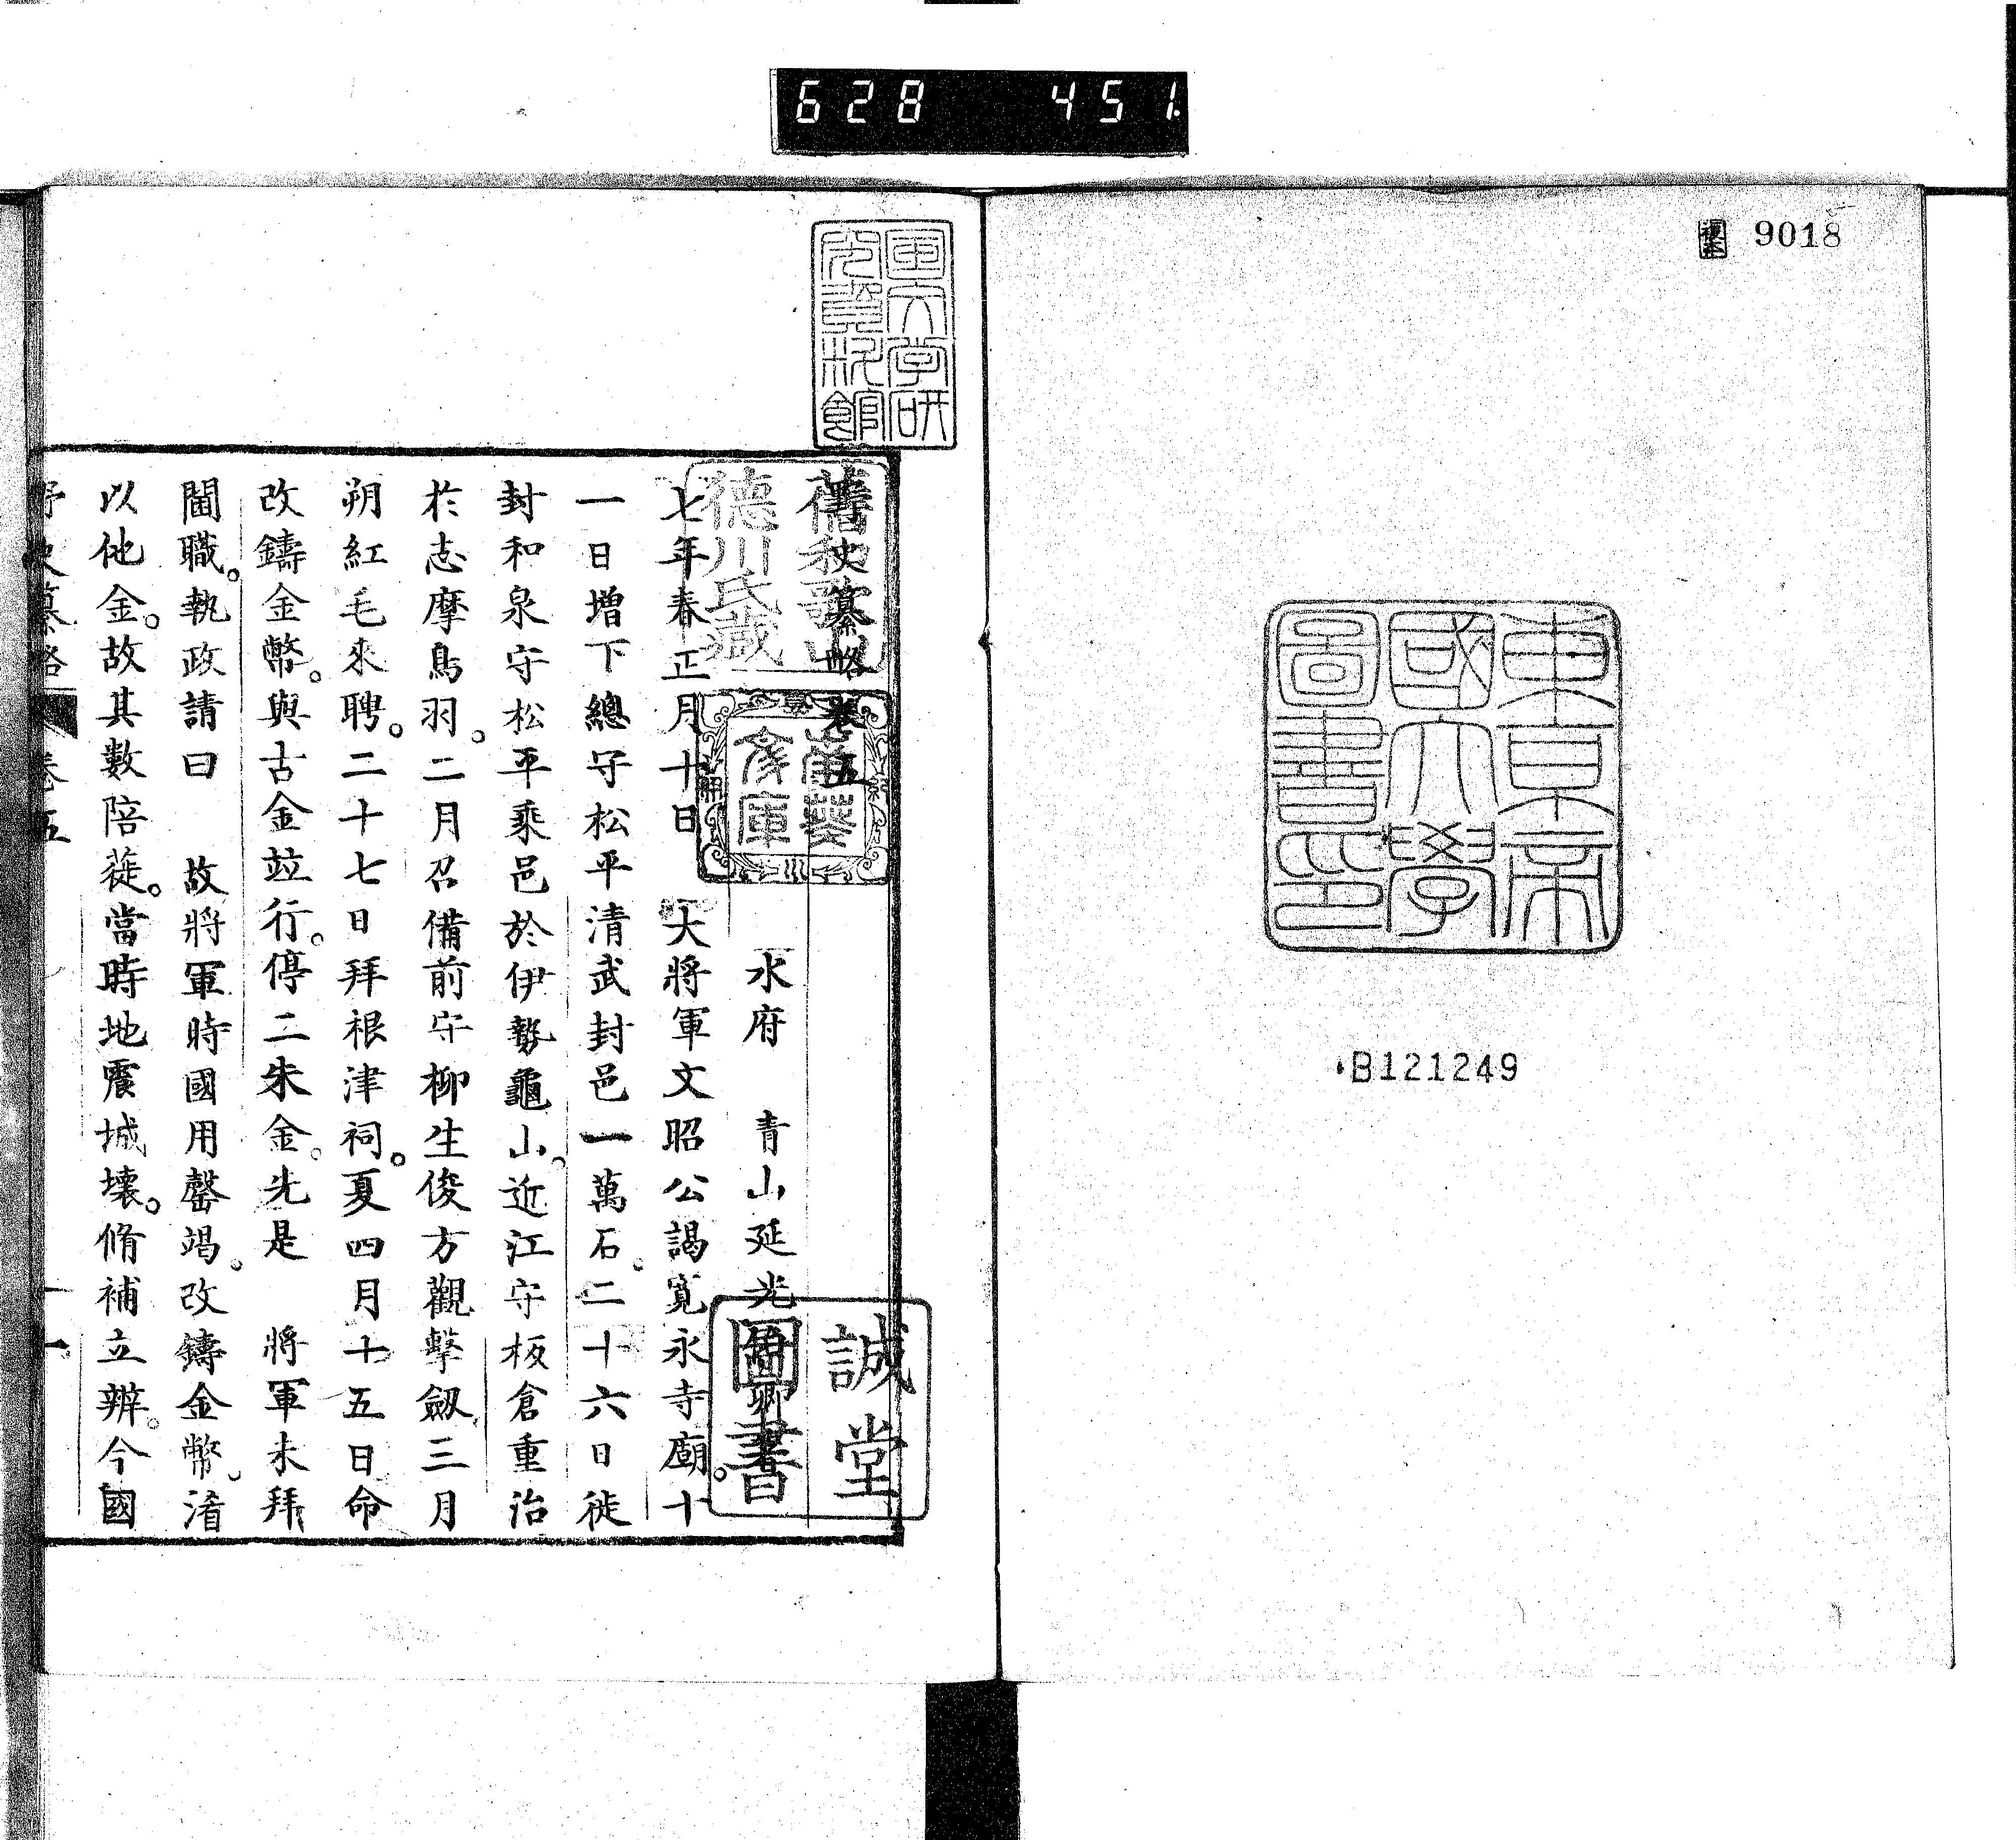 628 451
複本 9018
東京帝
國大學
圖書印
B121249
東大学研
究資料館
舊和歌山
德川氏藏
南葵
文庫
誠堂
圖書
野史纂略卷五
水府 青山延光伯卿著
七年春正月十日 大將軍文昭公謁寬永寺廟。十
一日增下總守松平清武封邑一萬石。二十六日徙
封和泉守松平乘邑於伊勢龜山。近江守板倉重治
於志摩鳥羽。二月召備前守柳生俊方觀擊劔。三月
朔紅毛來聘。二十七日拜根津祠。夏四月十五日命
改鑄金幣。與古金竝行。停二朱金。先是 將軍未拜
閫職。執政請曰 故將軍時國用罄竭。改鑄金幣。淆
以他金。故其數陪蓰。當時地震城壞。脩補立辨。今國
野史纂略 卷五 一